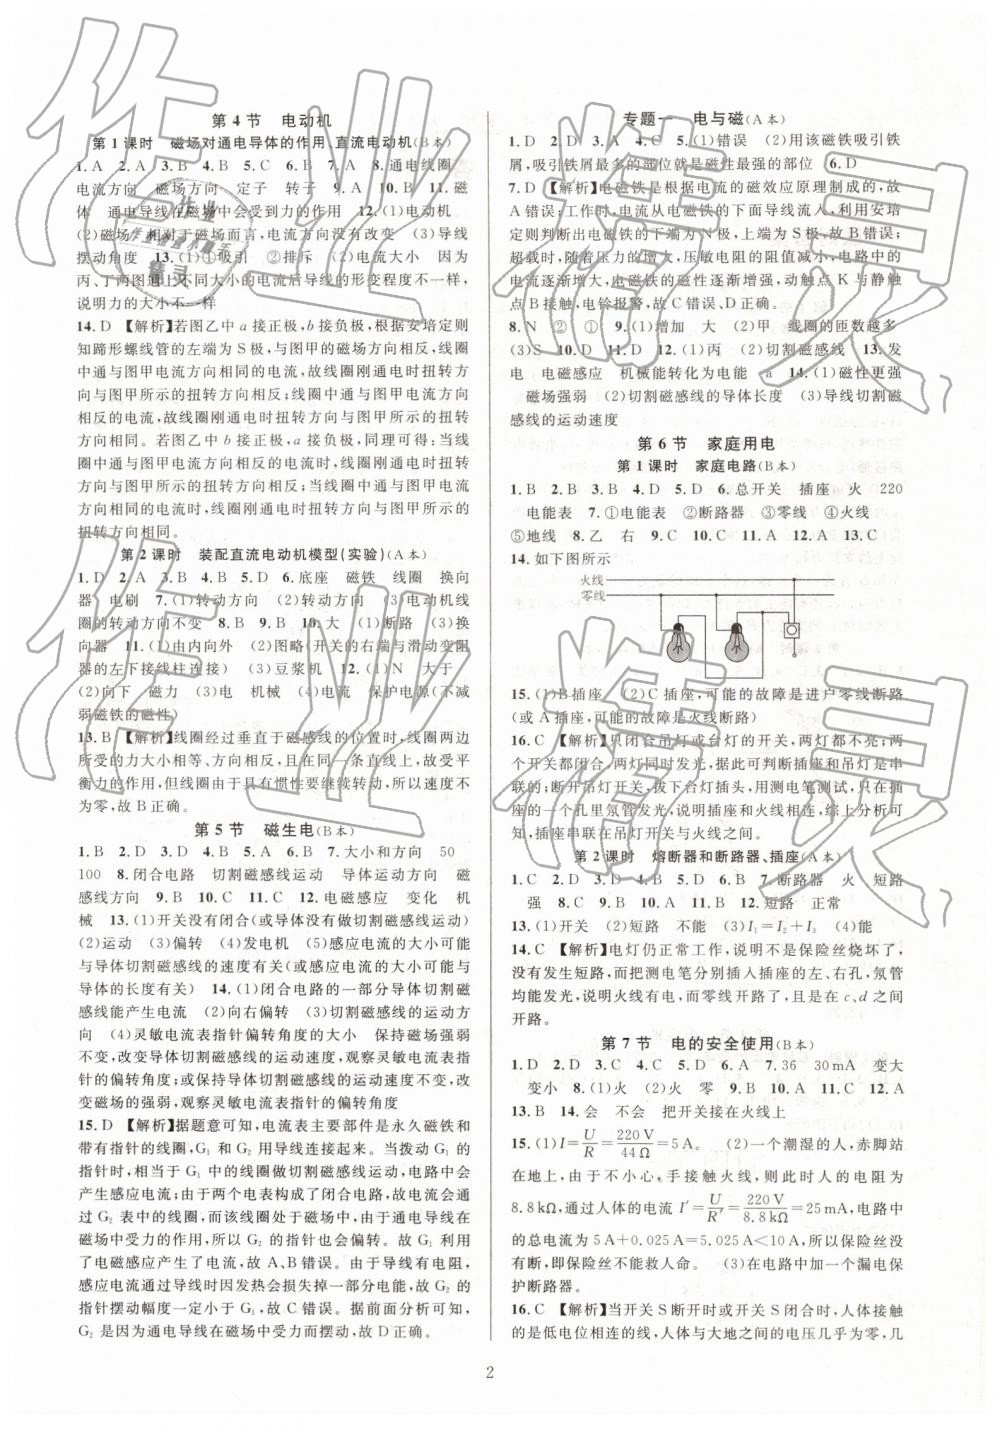 第4节 电动机
第1课时 磁场对通电导体的作用、直流电动机(B本)
1. A 2. A 3. B 4. B 5. C 6. B 7. A 8. 通电线圈
电流方向 磁场方向 定子 转子 9. A 10. B 11. 磁
体 通电导线在磁场中会受到力的作用 12. (1)电动机
(2)磁场 相对于磁场而言,电流方向没有改变 (3)导线
摆动角度 13. (1)①吸引 ②排斥 (2)电流大小 因为
丙、丁两图通上不同大小的电流后导线的形变程度不一样,
说明力的大小不一样
14. D 【解析】若图乙中 a 接正极,b 接负极,根据安培定则
知蹄形螺线管的左端为 S 极,与图甲的磁场方向相反,线圈
中通与图甲电流方向相同的电流,故线圈刚通电时扭转方
向与图甲所示的扭转方向相反;线圈中通与图甲电流方向
相反的电流,故线圈刚通电时扭转方向与图甲所示的扭转
方向相同。若图乙中 b 接正极,a 接负极,同理可得:当线
圈中通与图甲电流方向相反的电流时,线圈刚通电时扭转
方向与图甲所示的扭转方向相反;当线圈中通与图甲电流
方向相同的电流时,线圈刚通电时扭转方向与图甲所示的
扭转方向相同。
第2课时 装配直流电动机模型(实验)(A本)
1. D 2. A 3. B 4. B 5. D 6. 底座 磁铁 线圈 换向
器 电刷 7. (1)转动方向 (2)转动方向 (3)电动机线
圈的转动方向不变 8. B 9. B 10. 大 (1)断路 (3)换
向器 11. (1)由内向外 (2)图略(开关的右端与滑动变阻
器的左下接线柱连接) (3)豆浆机 12. (1)N 大于
(2)向下 磁力 (3)电 机械 (4)电流 保护电源(不减
弱磁铁的磁性)
13. B 【解析】线圈经过垂直于磁感线的位置时,线圈两边
所受的力大小相等、方向相反,且在同一条直线上,故受平
衡力的作用,但线圈由于具有惯性要继续转动,所以速度不
为零,故 B 正确。
第5节 磁生电(B本)
1. B 2. D 3. D 4. B 5. A 6. B 7. 大小和方向 50
100 8. 闭合电路 切割磁感线运动 导体运动方向 磁
感线方向 9. B 10. C 11. C 12. 电磁感应 变化 机
械 13. (1)开关没有闭合(或导体没有做切割磁感线运动)
(2)运动 (3)偏转 (4)发电机 (5)感应电流的大小可能
与导体切割磁感线的速度有关(或感应电流的大小可能与
导体的长度有关) 14. (1)闭合电路的一部分导体切割磁
感线能产生电流 (2)向右偏转 (3)导体切割磁感线的运动方
向 (4)灵敏电流表指针偏转角度的大小 保持磁场强弱
不变,改变导体切割磁感线的运动速度,观察灵敏电流表指
针的偏转角度;或保持导体切割磁感线的运动速度不变,改
变磁场的强弱,观察灵敏电流表指针的偏转角度
15. D 【解析】据题意可知,电流表主要部件是永久磁铁和
带有指针的线圈,G₁ 和 G₂ 用导线连接起来。当拨动 G₁ 的
指针时,相当于 G₁ 中的线圈做切割磁感线运动,电路中会
产生感应电流;由于两个电表构成了闭合电路,故电流会
通过 G₂ 表中的线圈,而该线圈处于磁场中,由于通电导线在
磁场中受力的作用,所以 G₂ 的指针也会偏转。故 G₁ 利用
了电磁感应产生了电流,故 A 错误。由于导线有电阻,
感应电流通过导线时因发热会损失掉一部分电能,故 G₂ 的
指针摆动幅度一定小于 G₁,故 C 错误。据前面分析可知,
G₂ 是因为通电导线在磁场中受力而摆动,故 D 正确。
专题一 电与磁(A本)
1. D 2. D 3. A 4. C 5. (1)错误 (2)用该磁铁吸引铁
屑,吸引铁屑最多的部位就是磁性最强的部位 6. D
7. D 【解析】电磁铁是根据电流的磁效应原理制成的,故
A 错误;工作时,电流从电磁铁的下面导线流入,利用安培
定则判断出电磁铁的下端为 N 极,上端为 S 极,故 B 错误;
超载时,随着压力的增大,压敏电阻的阻值减小,电路中的
电流逐渐增大,电磁铁的磁性逐渐增强,动触点 K 与静触
点 B 接触,电铃报警,故 C 错误、D 正确。
8. N ② ① 9. (1)增加 大 (2)甲 线圈的匝数越多
(3)S 10. D 11. D 12. (1)丙 (2)切割磁感线 13. 发
电 电磁感应 机械能转化为电能 a 14. (1)磁性更强
磁场强弱 (2)切割磁感线的导体长度 (3)导线切割磁
感线的运动速度
第6节 家庭用电
第1课时 家庭电路(B本)
1. B 2. D 3. B 4. D 5. D 6. 总开关 插座 火 220
电能表 7. ①电能表 ②断路器 ③零线 ④火线
⑤地线 8. 乙 右 9. C 10. C 11. A 12. A 13. C
14. 如下图所示
火线
零线
15. (1)B 插座 (2)C 插座,可能的故障是进户零线断路
(或 A 插座,可能的故障是火线断路)
16. C 【解析】只闭合吊灯或台灯的开关,两灯都不亮;两个
开关都闭合,两灯同时发光,据此可判断插座和吊灯是串
联的;断开吊灯开关,闭合台灯开关,用测电笔测试,只在插
座的一个孔里氖管发光,说明插座和火线相连,综上分析可
知,插座串联在吊灯开关与火线之间。
第2课时 熔断器和断路器、插座(A本)
1. C 2. D 3. A 4. D 5. B 6. B 7. 断路器 火 短路
强 8. C 9. B 10. A 11. B 12. 短路 正常
13. (1)开关 (2)短路 不能 (3)I₁=I₂+I₃ (4)能
14. C 【解析】电灯仍正常工作,说明不是保险丝烧坏了,
没有发生短路,而把测电笔分别插入插座的左、右孔,氖管
均能发光,说明火线有电,而零线开路了,且是在 c、d 之间
开路。
第7节 电的安全使用(B本)
1. D 2. D 3. B 4. C 5. D 6. C 7. 36 30 mA 变大
变小 8. (1)火 (2)火 零 9. B 10. B 11. C 12. A
13. B 14. 会 不会 把开关接在火线上
15. (1)I=U/R=220 V/44 Ω=5 A。 (2)一个潮湿的人,赤脚站
在地上,由于不小心,手接触火线,则此时人的电阻为
8.8 kΩ,通过人体的电流 I′=U/R′=220 V/8.8 kΩ=25 mA,电路中
的总电流为 5 A+0.025 A=5.025 A<10 A,所以保险丝没有
断,即保险丝不能救人命。 (3)在电路中加一个漏电保
护断路器。
16. C 【解析】当开关 S 断开时或开关 S 闭合时,人体接触
的是低电位相连的线,人体与大地之间的电压几乎为零,几
2
作业精灵
作业精灵